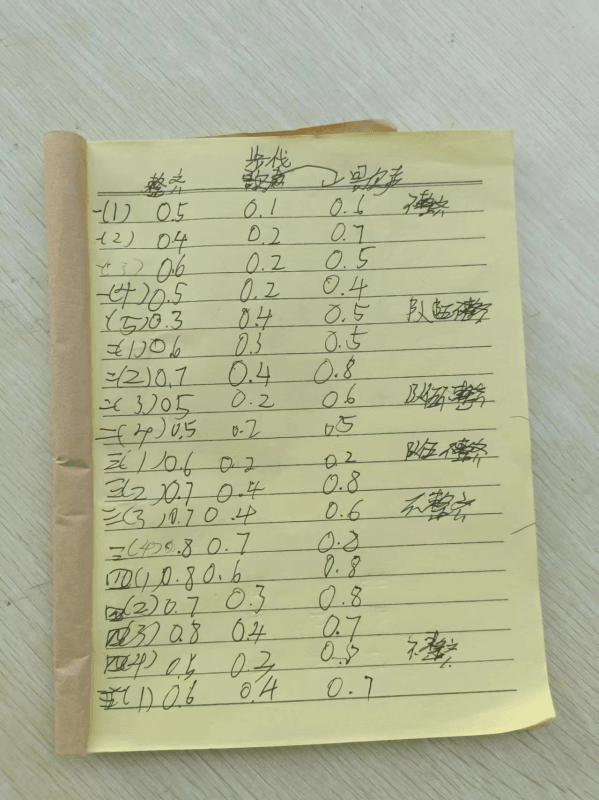 步伐
整齐 歌声
一(1) 0.5 0.1 0.6 不整齐
一(2) 0.4 0.2 0.7
一(3) 0.6 0.2 0.5
一(4) 0.5 0.2 0.4
一(5) 0.3 0.4 0.5 队伍不整齐
二(1) 0.6 0.3 0.5
二(2) 0.7 0.4 0.8
二(3) 0.5 0.2 0.6 队伍不整齐
二(4) 0.5 0.2 0.5
三(1) 0.6 0.2 0.2 队伍不整齐
三(2) 0.7 0.4 0.8
三(3) 0.7 0.4 0.6 不整齐
三(4) 0.8 0.7 0.8
四(1) 0.8 0.6 0.8
四(2) 0.7 0.3 0.8
四(3) 0.8 0.4 0.7
四(4) 不整齐
五(1) 0.6 0.4 0.7